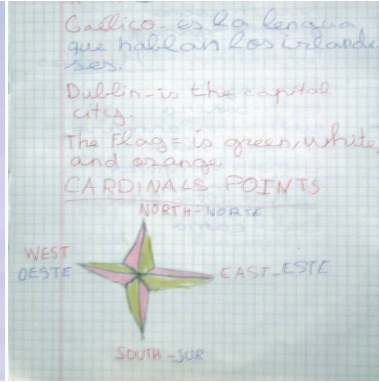 Gaélico - es la lengua
que hablan los irlande
ses.
Dublin - is the capital
city.
The Flag = is green, white,
and orange
CARDINALS POINTS
NORTH - NORTE
WEST
OESTE
EAST - ESTE
SOUTH - SUR